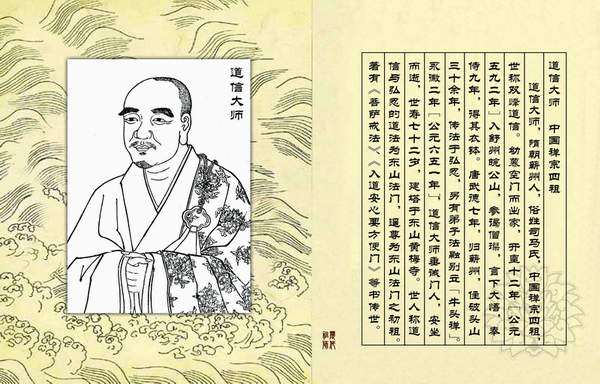 道信大师
道信大师　中国禅宗四祖
道信大师，隋朝蕲州人，俗姓司马氏，中国禅宗四祖，
世称双峰道信。幼慕空门而出家，开皇十二年〔公元
五九二年〕入舒州皖公山，参谒僧璨，言下大悟，奉
侍九年，得其衣钵。唐武德七年，归蕲州，住破头山
三十余年，传法于弘忍，另有弟子法融别立「牛头禅」。
永徽二年〔公元六五一年〕，道信大师垂诫门人，安坐
而逝，世寿七十二岁，建塔于东山黄梅寺。世人称道
信与弘忍的道法为东山法门，遥尊为东山法门之初祖。
著有《菩萨戒法》《入道安心要方便门》等书传世。